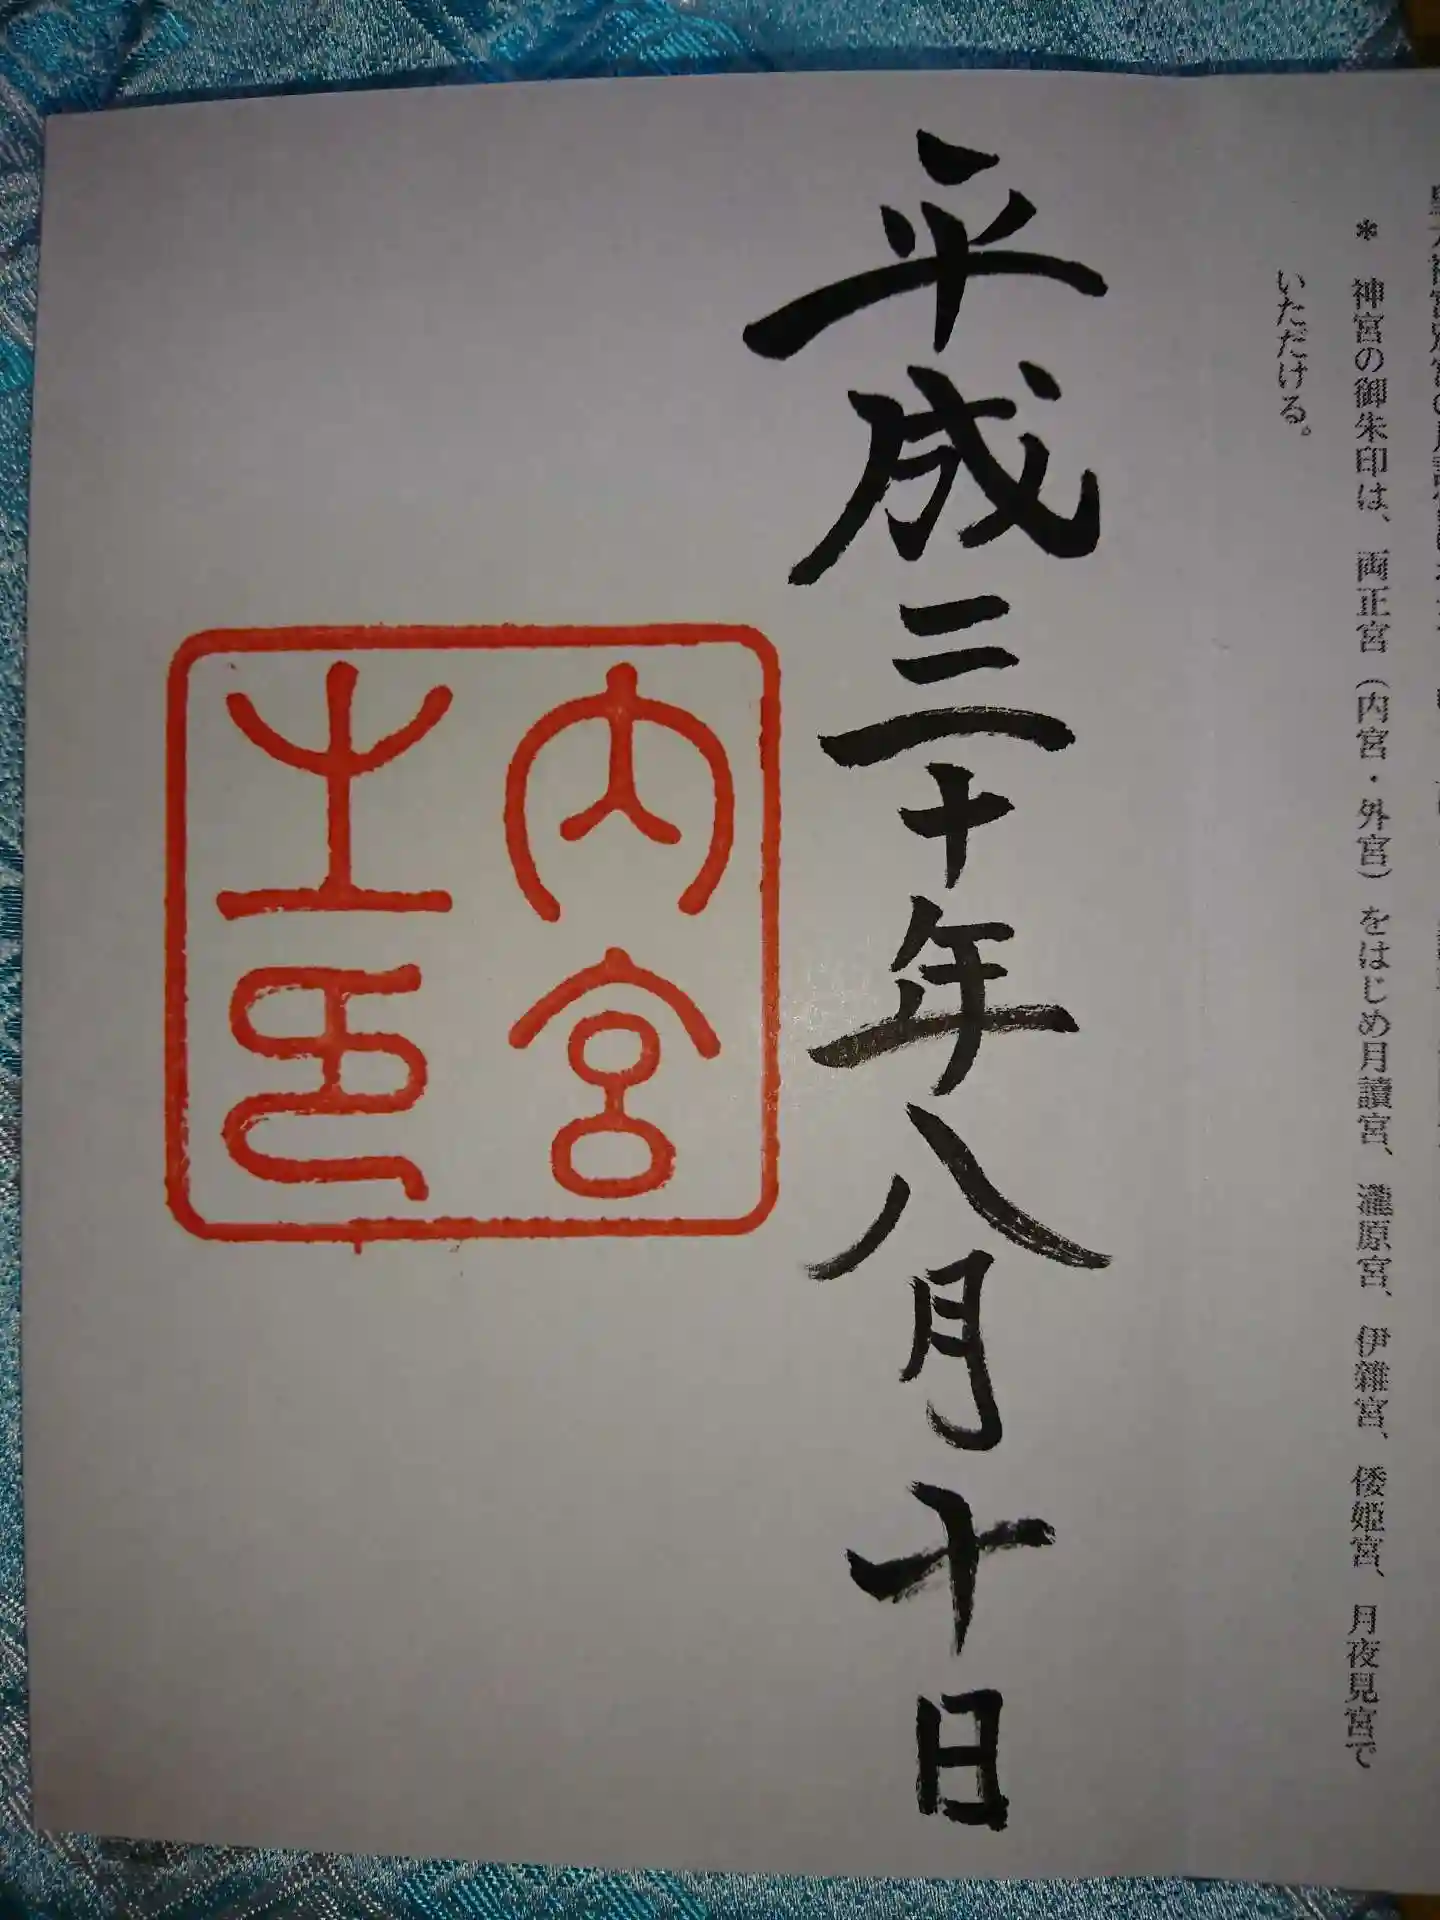 * 神宮の御朱印は、両正宮(内宮・外宮)をはじめ月讀宮、瀧原宮、伊雑宮、倭姫宮、月夜見宮で
いただける。
平成三十年八月十日
内宮
之印